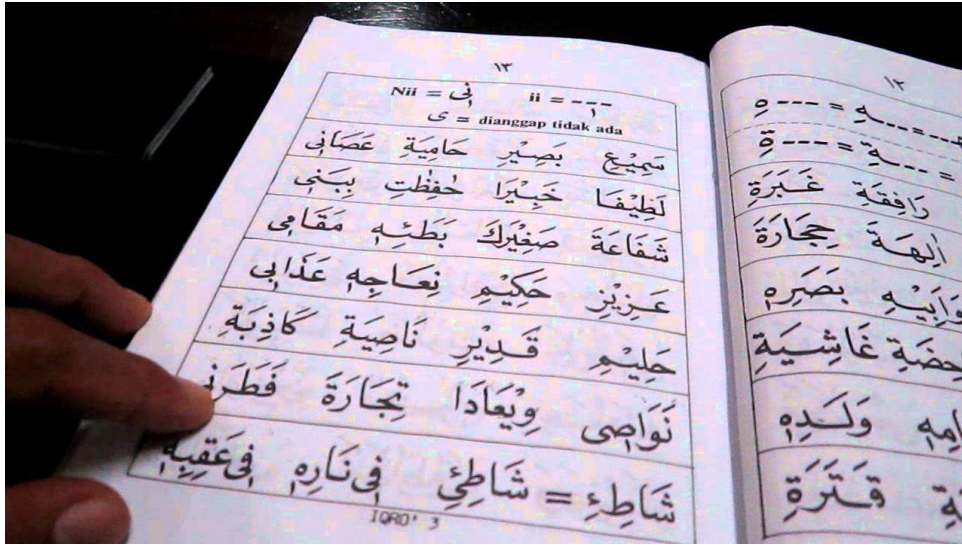 ١٣
Nii = نِى ii = - - -
ى = dianggap tidak ada
سَمِيْعِ بَصِيْرِ حَامِيَةِ عَصَانِى
لَطِيْفَا خَبِيْرَا حٰفِظٰتِ بِبَنِى
شَفَاعَةَ صَغِيْرَكَ بَطَئِهِ مَقَامِى
عَزِيْزِ حَكِيْمِ نِعَاجِهِ عَذَابِى
حَلِيْمِ قَدِيْرِ نَاصِيَةِ كَاذِبَةِ
نَوَاصِى وِيْعَادَا تِجَارَةَ فَطَرَنِى
شَاطِءِ = شَاطِئِ فِى نَارِهِ فِى عَقِبِهِ
IQRO' 3
١٢
رَافِقَةِ غَبَرَةِ
اٰلِهَةَ حِجَارَةَ
بَصَرِهِ
غَاشِيَةِ
وَلَدِهِ
قَتَرَةِ